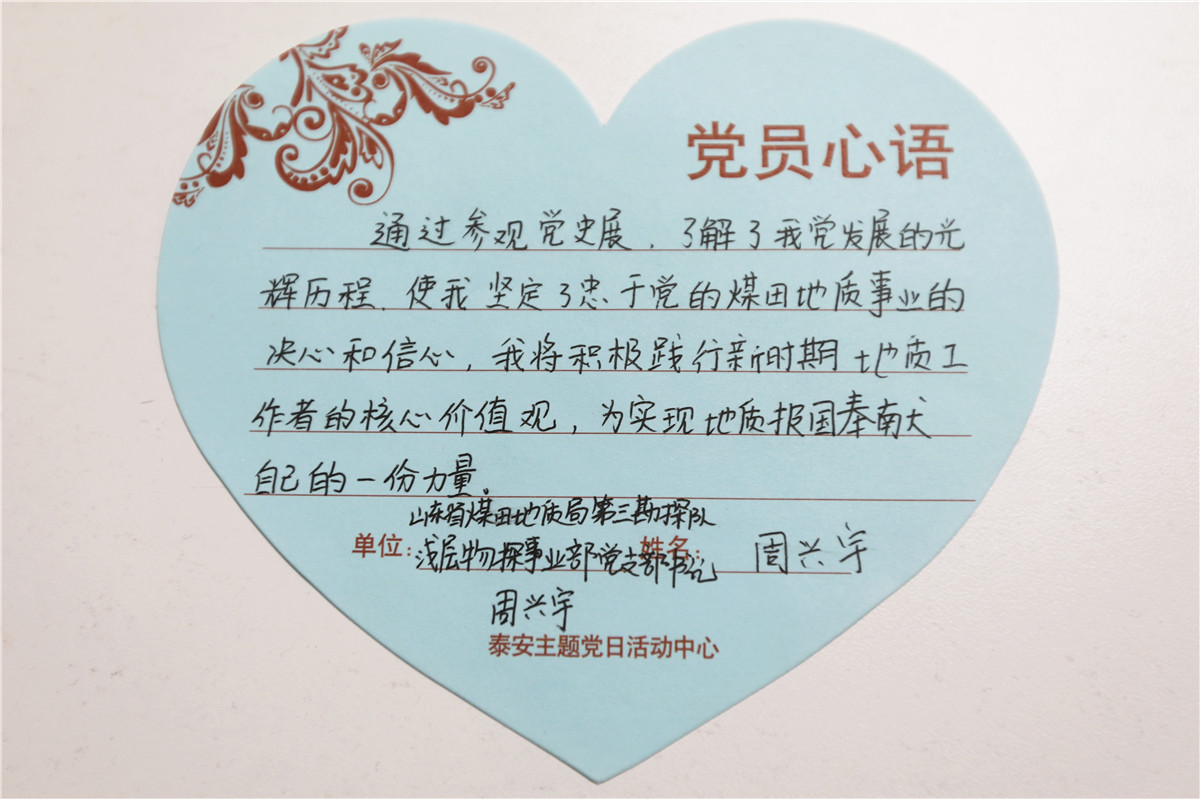 党员心语
通过参观党史展，了解了我党发展的光
辉历程，使我坚定了忠于党的煤田地质事业的
决心和信心，我将积极践行新时期地质工
作者的核心价值观，为实现地质报国奉南犬
自己的一份力量。
山东省煤田地质局第三勘探队
单位：浅层物探事业部党支部书记 姓名：周兴宇
周兴宇
泰安主题党日活动中心